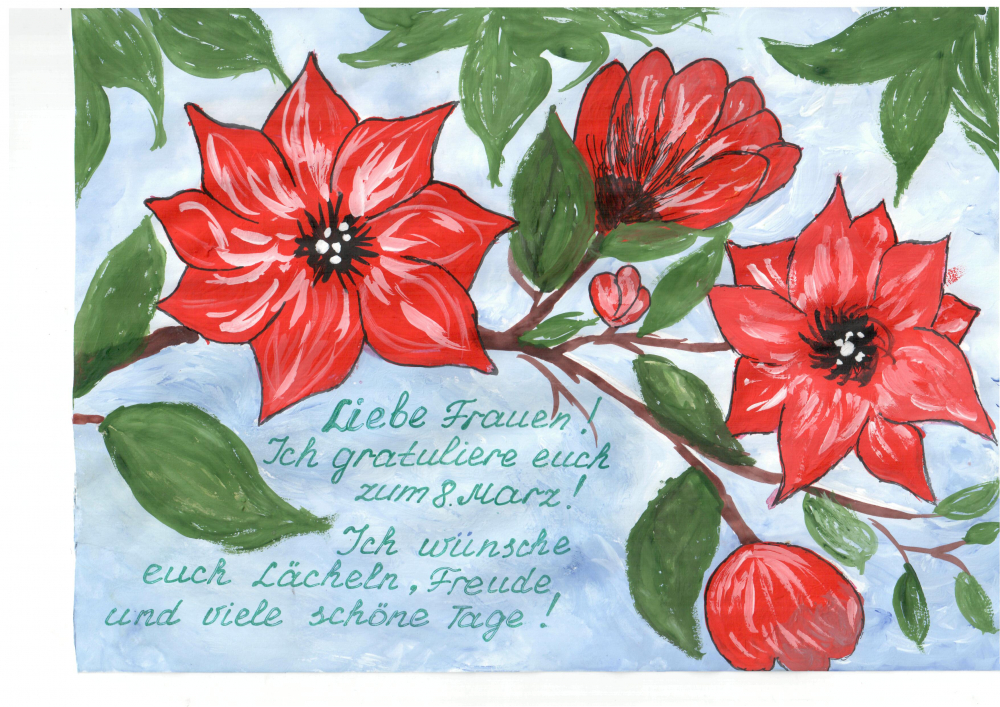 Liebe Frauen!
Ich gratuliere euch
zum 8. Marz!
Ich wünsche
euch Lächeln, Freude
und viele schöne Tage!